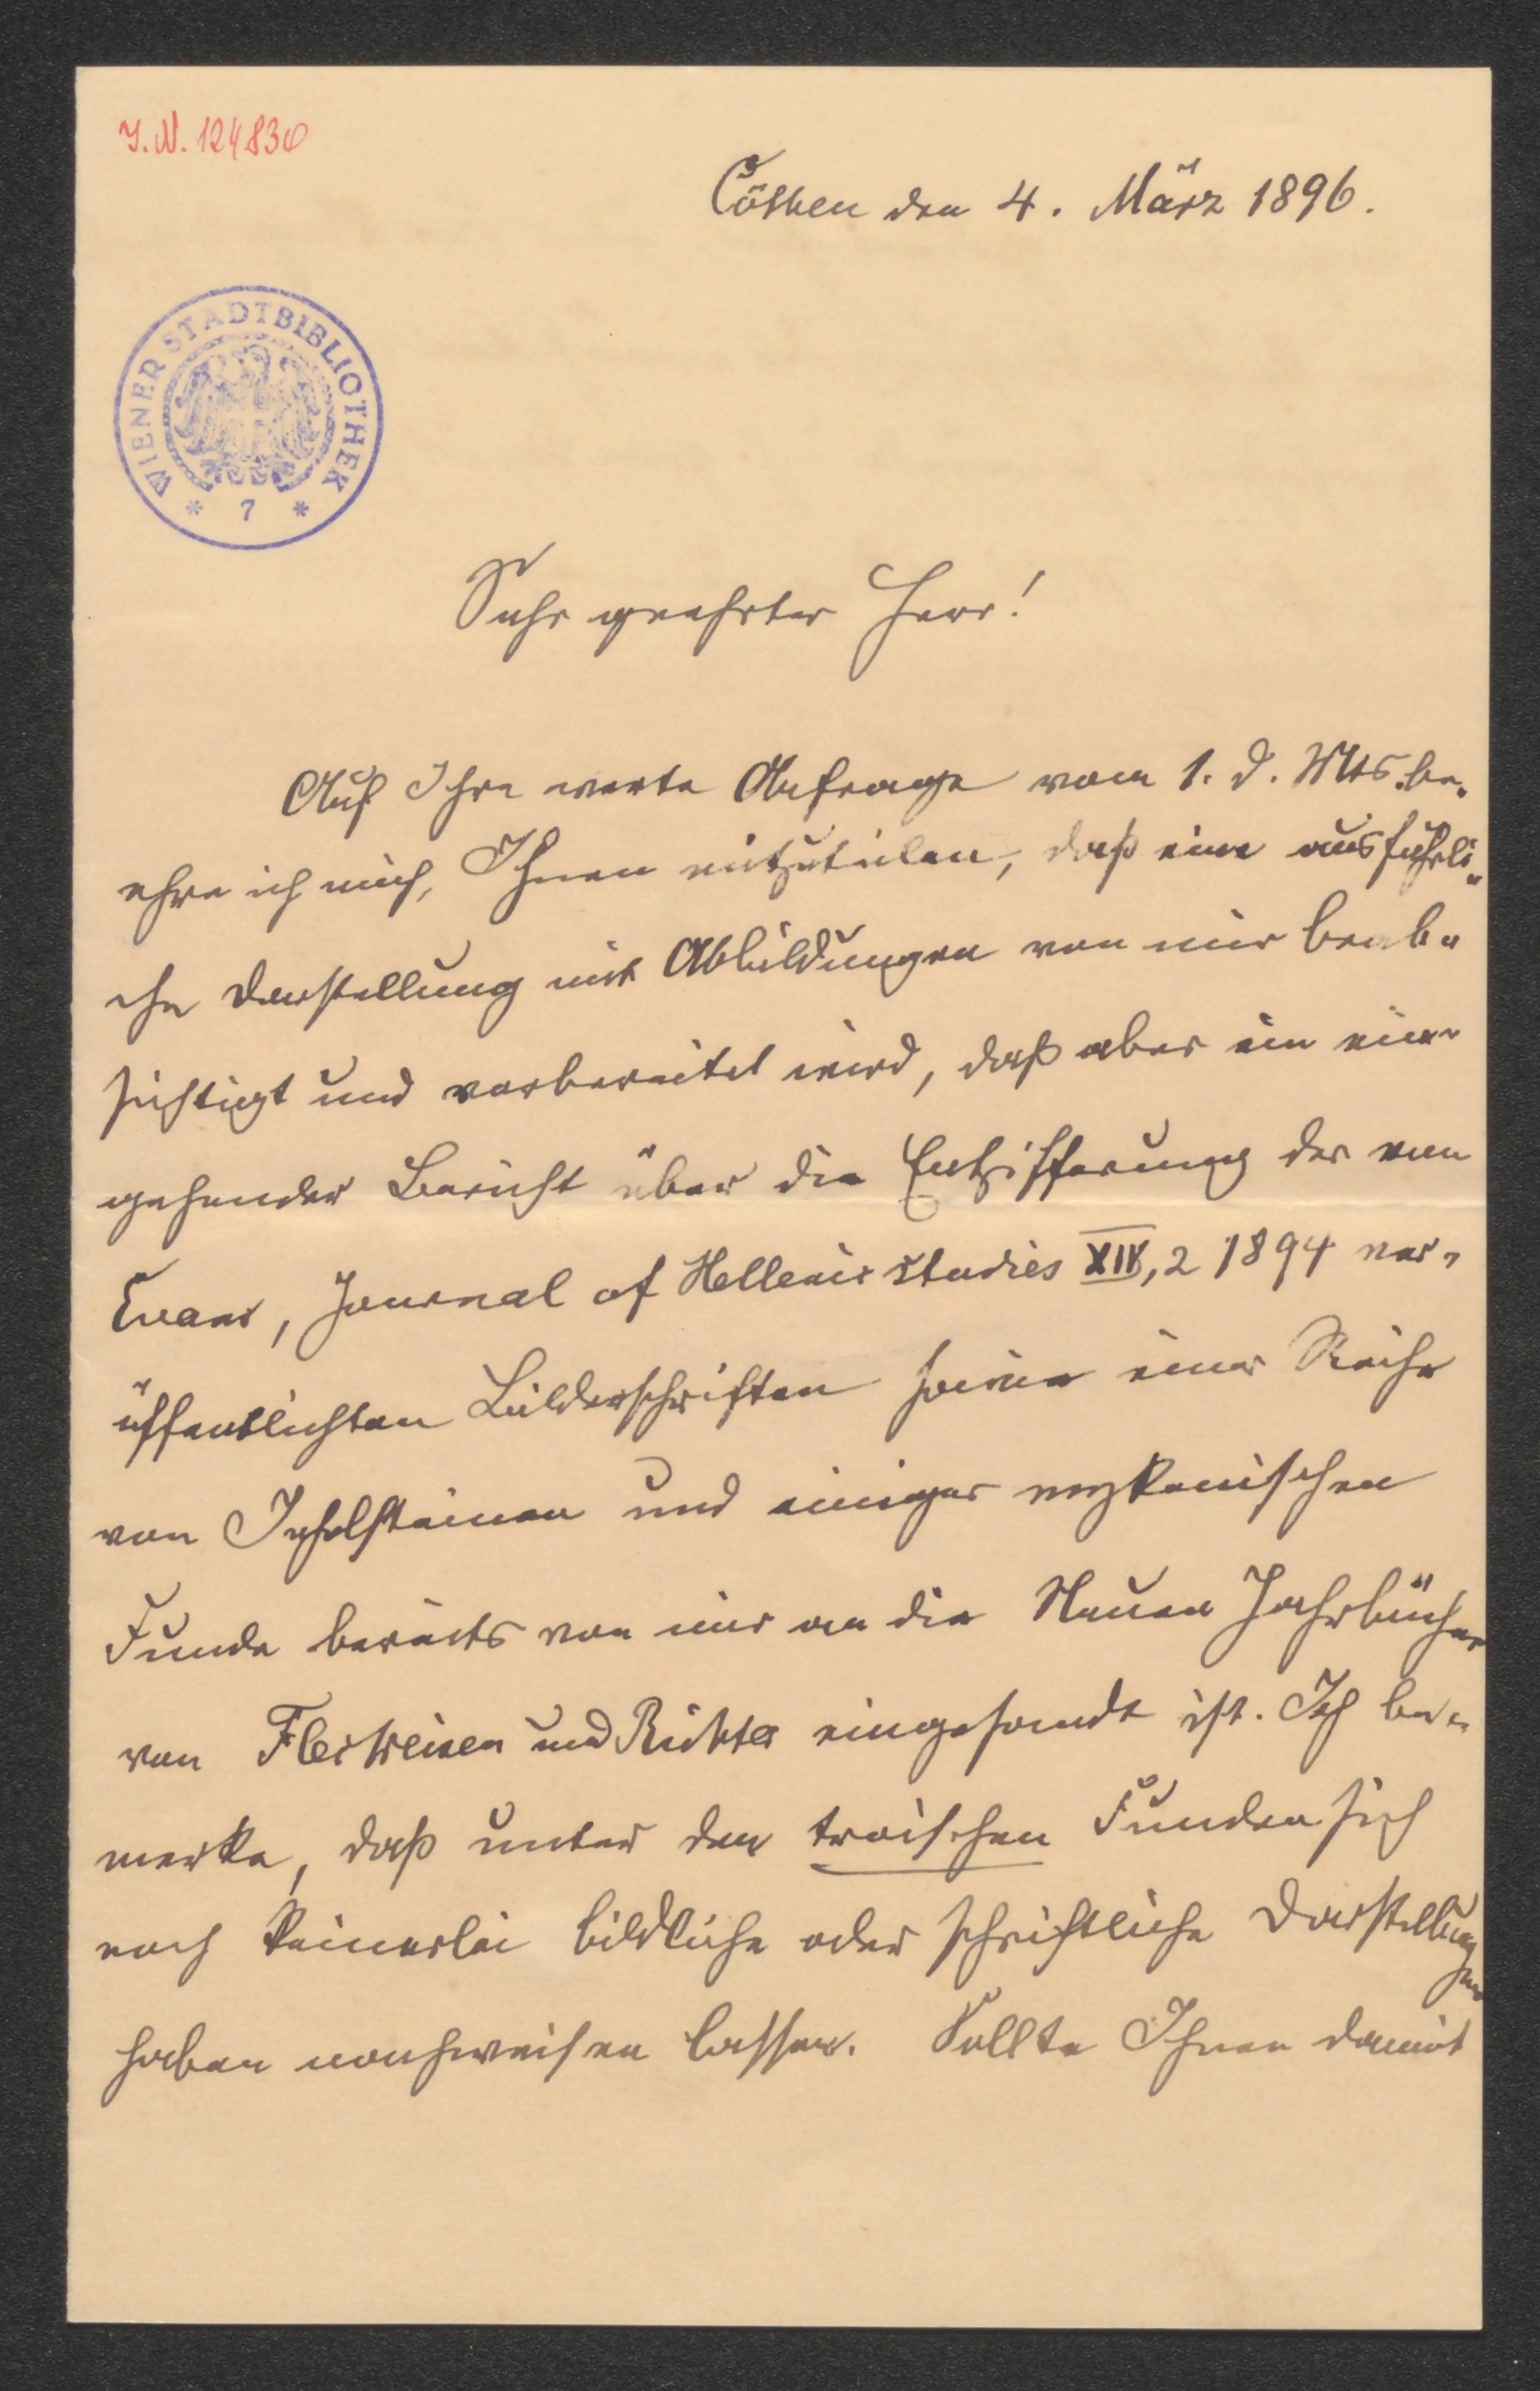 I.N. 124830
Cöthen den 4. März 1896.
WIENER STADTBIBLIOTHEK
* 7 *
Sehr geehrter Herr!
Auf Ihre werte Anfrage vom 1. d. Mts. be-
ehre ich mich, Ihnen mitzuteilen, daß eine ausführli-
che Darstellung mit Abbildungen von mir beab-
sichtigt und vorbereitet wird, daß aber ein ein-
gehender Bericht über die Entzifferung der von
Evans, Journal of Hellenic studies XIV, 2 1894 ver-
öffentlichten Bilderschriften sowie einer Reihe
von Inselsteinen und einiger mykenischen
Funde bereits von mir an die Neuen Jahrbücher
von Fleckeisen und Richter eingesandt ist. Ich be-
merke, daß unter den troischen Funden sich
noch keinerlei bildliche oder schriftliche Darstellungen
haben nachweisen lassen. Sollte Ihnen damit